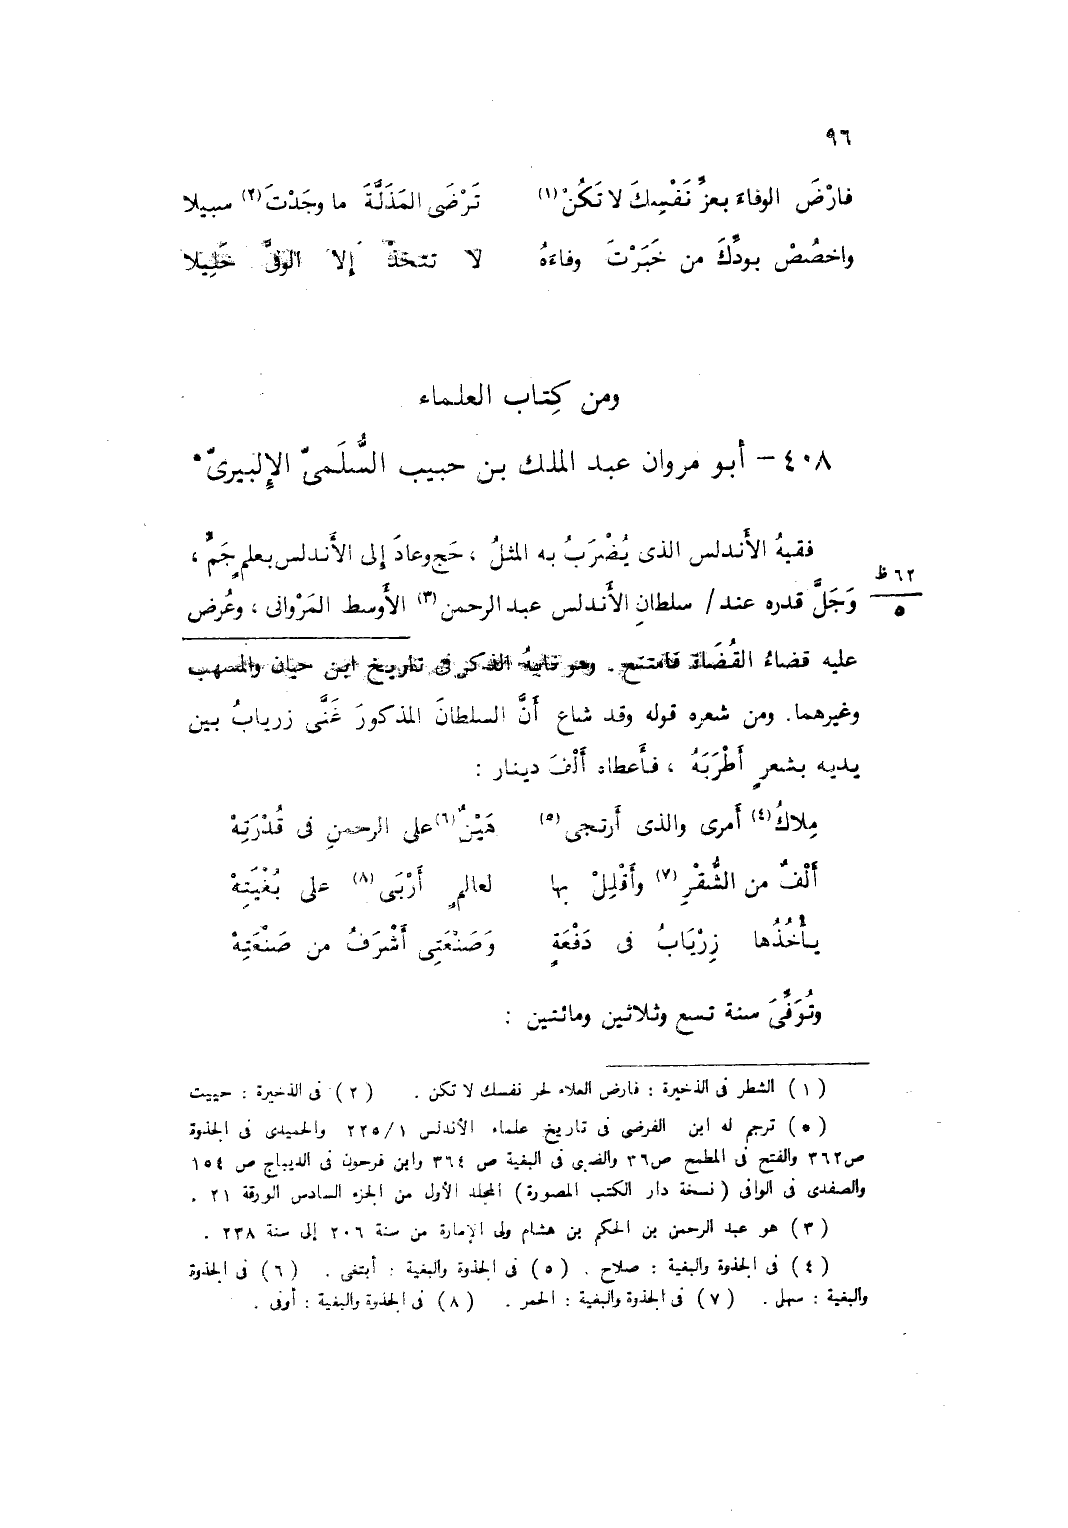 ٩٦
فارْضَ الوفاءَ بعزِّ نَفْسِكَ لا تَكُنْ(١) تَرْضَى المَذَلَّةَ ما وجَدْتَ(٢) سبيلا
واخصُصْ بودِّكَ من خَبَرْتَ وفاءَهُ لا تتخذْ إلا الوفىَّ خَلِيلا
ومن كِتاب العلماء
٤٠٨ – أبو مروان عبد الملك بن حبيب السُّلَمىّ الإلبيرىّ*
فقيهُ الأَندلس الذى يُضْرَبُ به المثلُ ، حَج وعادَ إلى الأَندلس بعلمٍ جَمٍّ ،
٦٢ ظ
٥
وَجَلَّ قدره عند / سلطانِ الأَندلس عبد الرحمن(٣) الأَوسط المَرْوانى ، وعُرِض
عليه قضاءُ القُضَاة فامتنع. وهو نابِهُ الذكر فى تاريخ ابن حيان والمسهب
وغيرهما. ومن شعره قوله وقد شاع أَنَّ السلطانَ المذكورَ غَنَّى زريابُ بين
يديه بشعرٍ أَطْرَبَهُ ، فأَعطاه أَلْفَ دينار :
مِلاكُ(٤) أَمرى والذى أَرتجى(٥) هَيْنٌ(٦) على الرحمنِ فى قُدْرَتِهْ
أَلْفٌ من الشُّقْرِ(٧) وأَقْلِلْ بها لعالمٍ أَرْبَى(٨) على بُغْيَتِهْ
يأْخُذُها زِرْيَابُ فى دَفْعَةٍ وَصَنْعَتِى أَشْرَفُ من صَنْعَتِهْ
وتُوُفِّىَ سنة تسع وثلاثين ومائتين :
(١) الشطر فى الذخيرة : فارض العلاء لحر نفسك لا تكن . (٢) فى الذخيرة : حييت
(*) ترجم له ابن الفرضى فى تاريخ علماء الأندلس ٢٢٥/١ والحميدى فى الجذوة
ص٣٦٢ والفتح فى المطمح ص٣٦ والضبى فى البغية ص ٣٦٤ وابن فرحون فى الديباج ص ١٥٤
والصفدى فى الوافى (نسخة دار الكتب المصورة) المجلد الأول من الجزء السادس الورقة ٢١ .
(٣) هو عبد الرحمن بن الحكم بن هشام ولى الإمارة من سنة ٢٠٦ إلى سنة ٢٣٨ .
(٤) فى الجذوة والبغية : صلاح . (٥) فى الجذوة والبغية : أبتغى . (٦) فى الجذوة
والبغية : سهل . (٧) فى الجذوة والبغية : الحمر . (٨) فى الجذوة والبغية : أوفى .